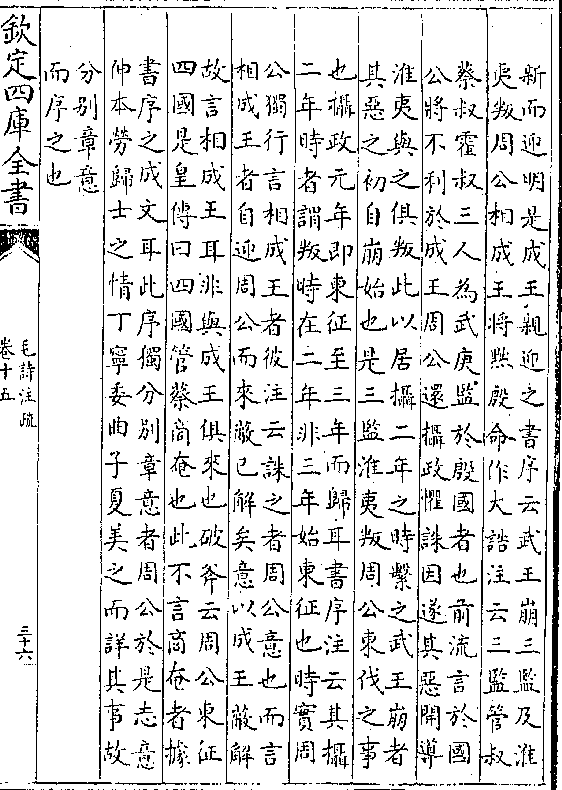 新而迎明是成王親迎之書序云武王崩三監及淮
夷叛周公相成王將黜殷命作大誥注云三監管叔
蔡叔霍叔三人為武庚監於殷國者也前流言於國
公將不利於成王周公還攝政懼誅因遂其惡開導
淮夷與之俱叛此以居攝二年之時繫之武王崩者
其惡之初自崩始也是三監淮夷叛周公東伐之事
也攝政元年即東征至三年而歸耳書序注云其攝
二年時者謂叛時在二年非三年始東征也時實周
公獨行言相成王者彼注云誅之者周公意也而言
相成王者自迎周公而來蔽已解矣意以成王蔽解
故言相成王耳非與成王俱來也破斧云周公東征
四國是皇傳曰四國管蔡商奄也此不言商奄者據
書序之成文耳此序獨分別章意者周公於是志意
伸本勞歸士之情丁寧委曲子夏美之而詳其事故
分別章意
而序之也
欽定四庫全書
毛詩注疏
卷十五
三十六